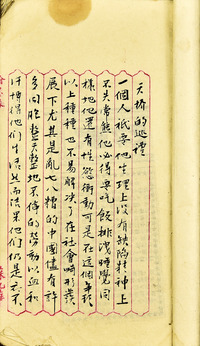 天桥的巡礼
一個人祇要他生理上没有缺陷精神上
不失常態他必得要吃飯排洩睡覺同
樣地他還有性慾衝動可是在這個
以上種種也不易解决了在社會畸形發
展下尤其是亂七八糟的中國儘有許
多同胞整天整地不停的勞動以血和
汗博得他們生活然而結果他們仍是